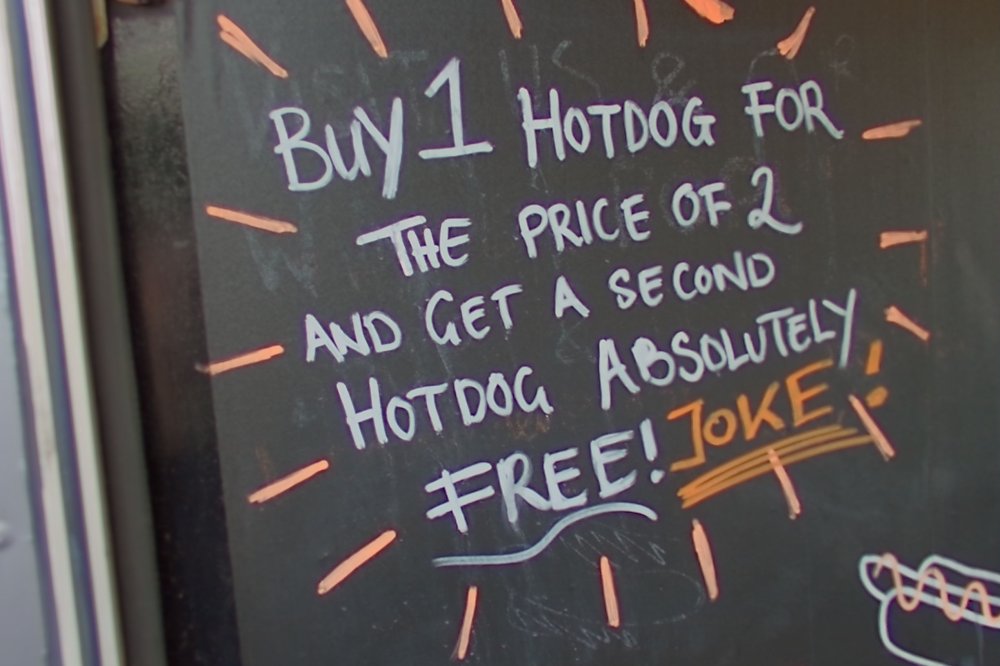 BUY 1 HOTDOG FOR
THE PRICE OF 2
AND GET A SECOND
HOTDOG ABSOLUTELY
FREE! JOKE!